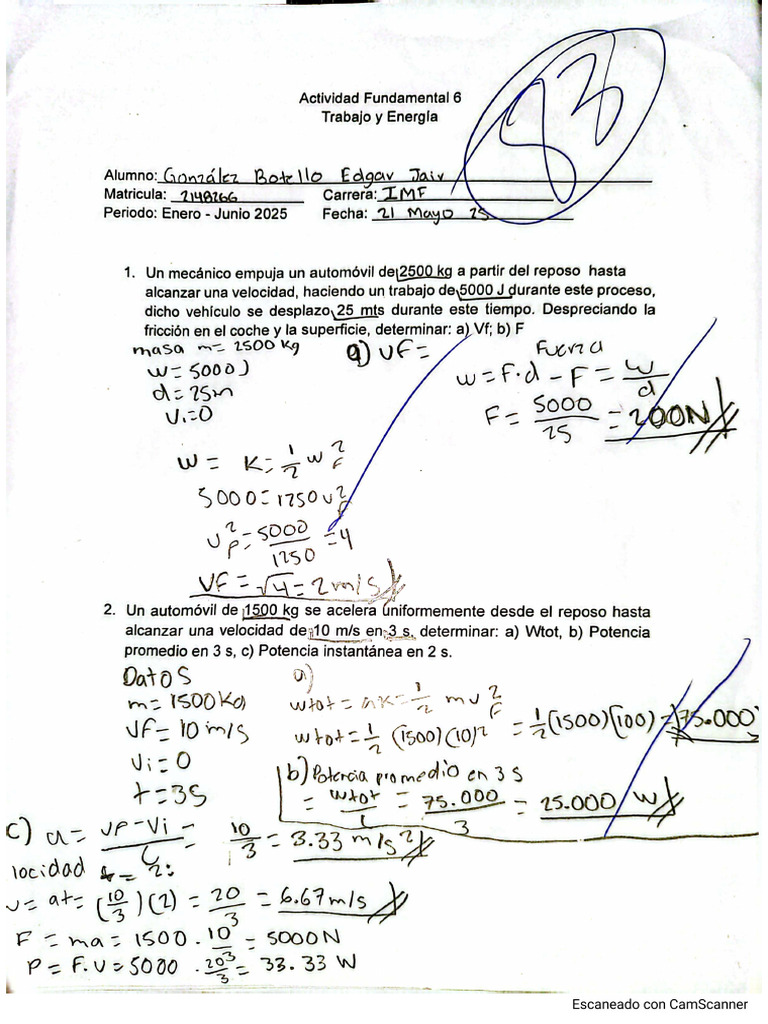 93
Actividad Fundamental 6
Trabajo y Energía
Alumno: González Botello Edgar Jair
Matricula: 2148266 Carrera: IMF
Periodo: Enero - Junio 2025 Fecha: 21 Mayo 25
1. Un mecánico empuja un automóvil de 2500 kg a partir del reposo hasta
alcanzar una velocidad, haciendo un trabajo de 5000 J durante este proceso,
dicho vehículo se desplazo 25 mts durante este tiempo. Despreciando la
fricción en el coche y la superficie, determinar: a) Vf; b) F
masa m= 2500 kg
W = 5000J
d = 25m
Vi=0
a) Vf=
Fuerza
W = F·d - F = W/d
F = 5000/25 = 200N
W = K = 1/2 w F^2
5000 = 1250 v^2 F
v^2 F = 5000/1250 = 4
VF = √4 = 2 m/s
2. Un automóvil de 1500 kg se acelera uniformemente desde el reposo hasta
alcanzar una velocidad de 10 m/s en 3 s, determinar: a) Wtot, b) Potencia
promedio en 3 s, c) Potencia instantánea en 2 s.
Datos
m = 1500 Kg
VF = 10 m/s
Vi = 0
t = 3s
a)
Wtot = ak = 1/2 m v^2 F
Wtot = 1/2 (1500)(10)^2 = 1/2 (1500)(100) = 75.000
b) Potencia promedio en 3 s
= Wtot/t = 75.000/3 = 25.000 W
c) a = VF-Vi/t = 10/3 = 3.33 m/s^2
locidad t = 2:
v = at = (10/3)(2) = 20/3 = 6.67 m/s
F = ma = 1500 · 10/3 = 5000N
P = F.V = 5000 · 20/3 = 33.33 W
Escaneado con CamScanner